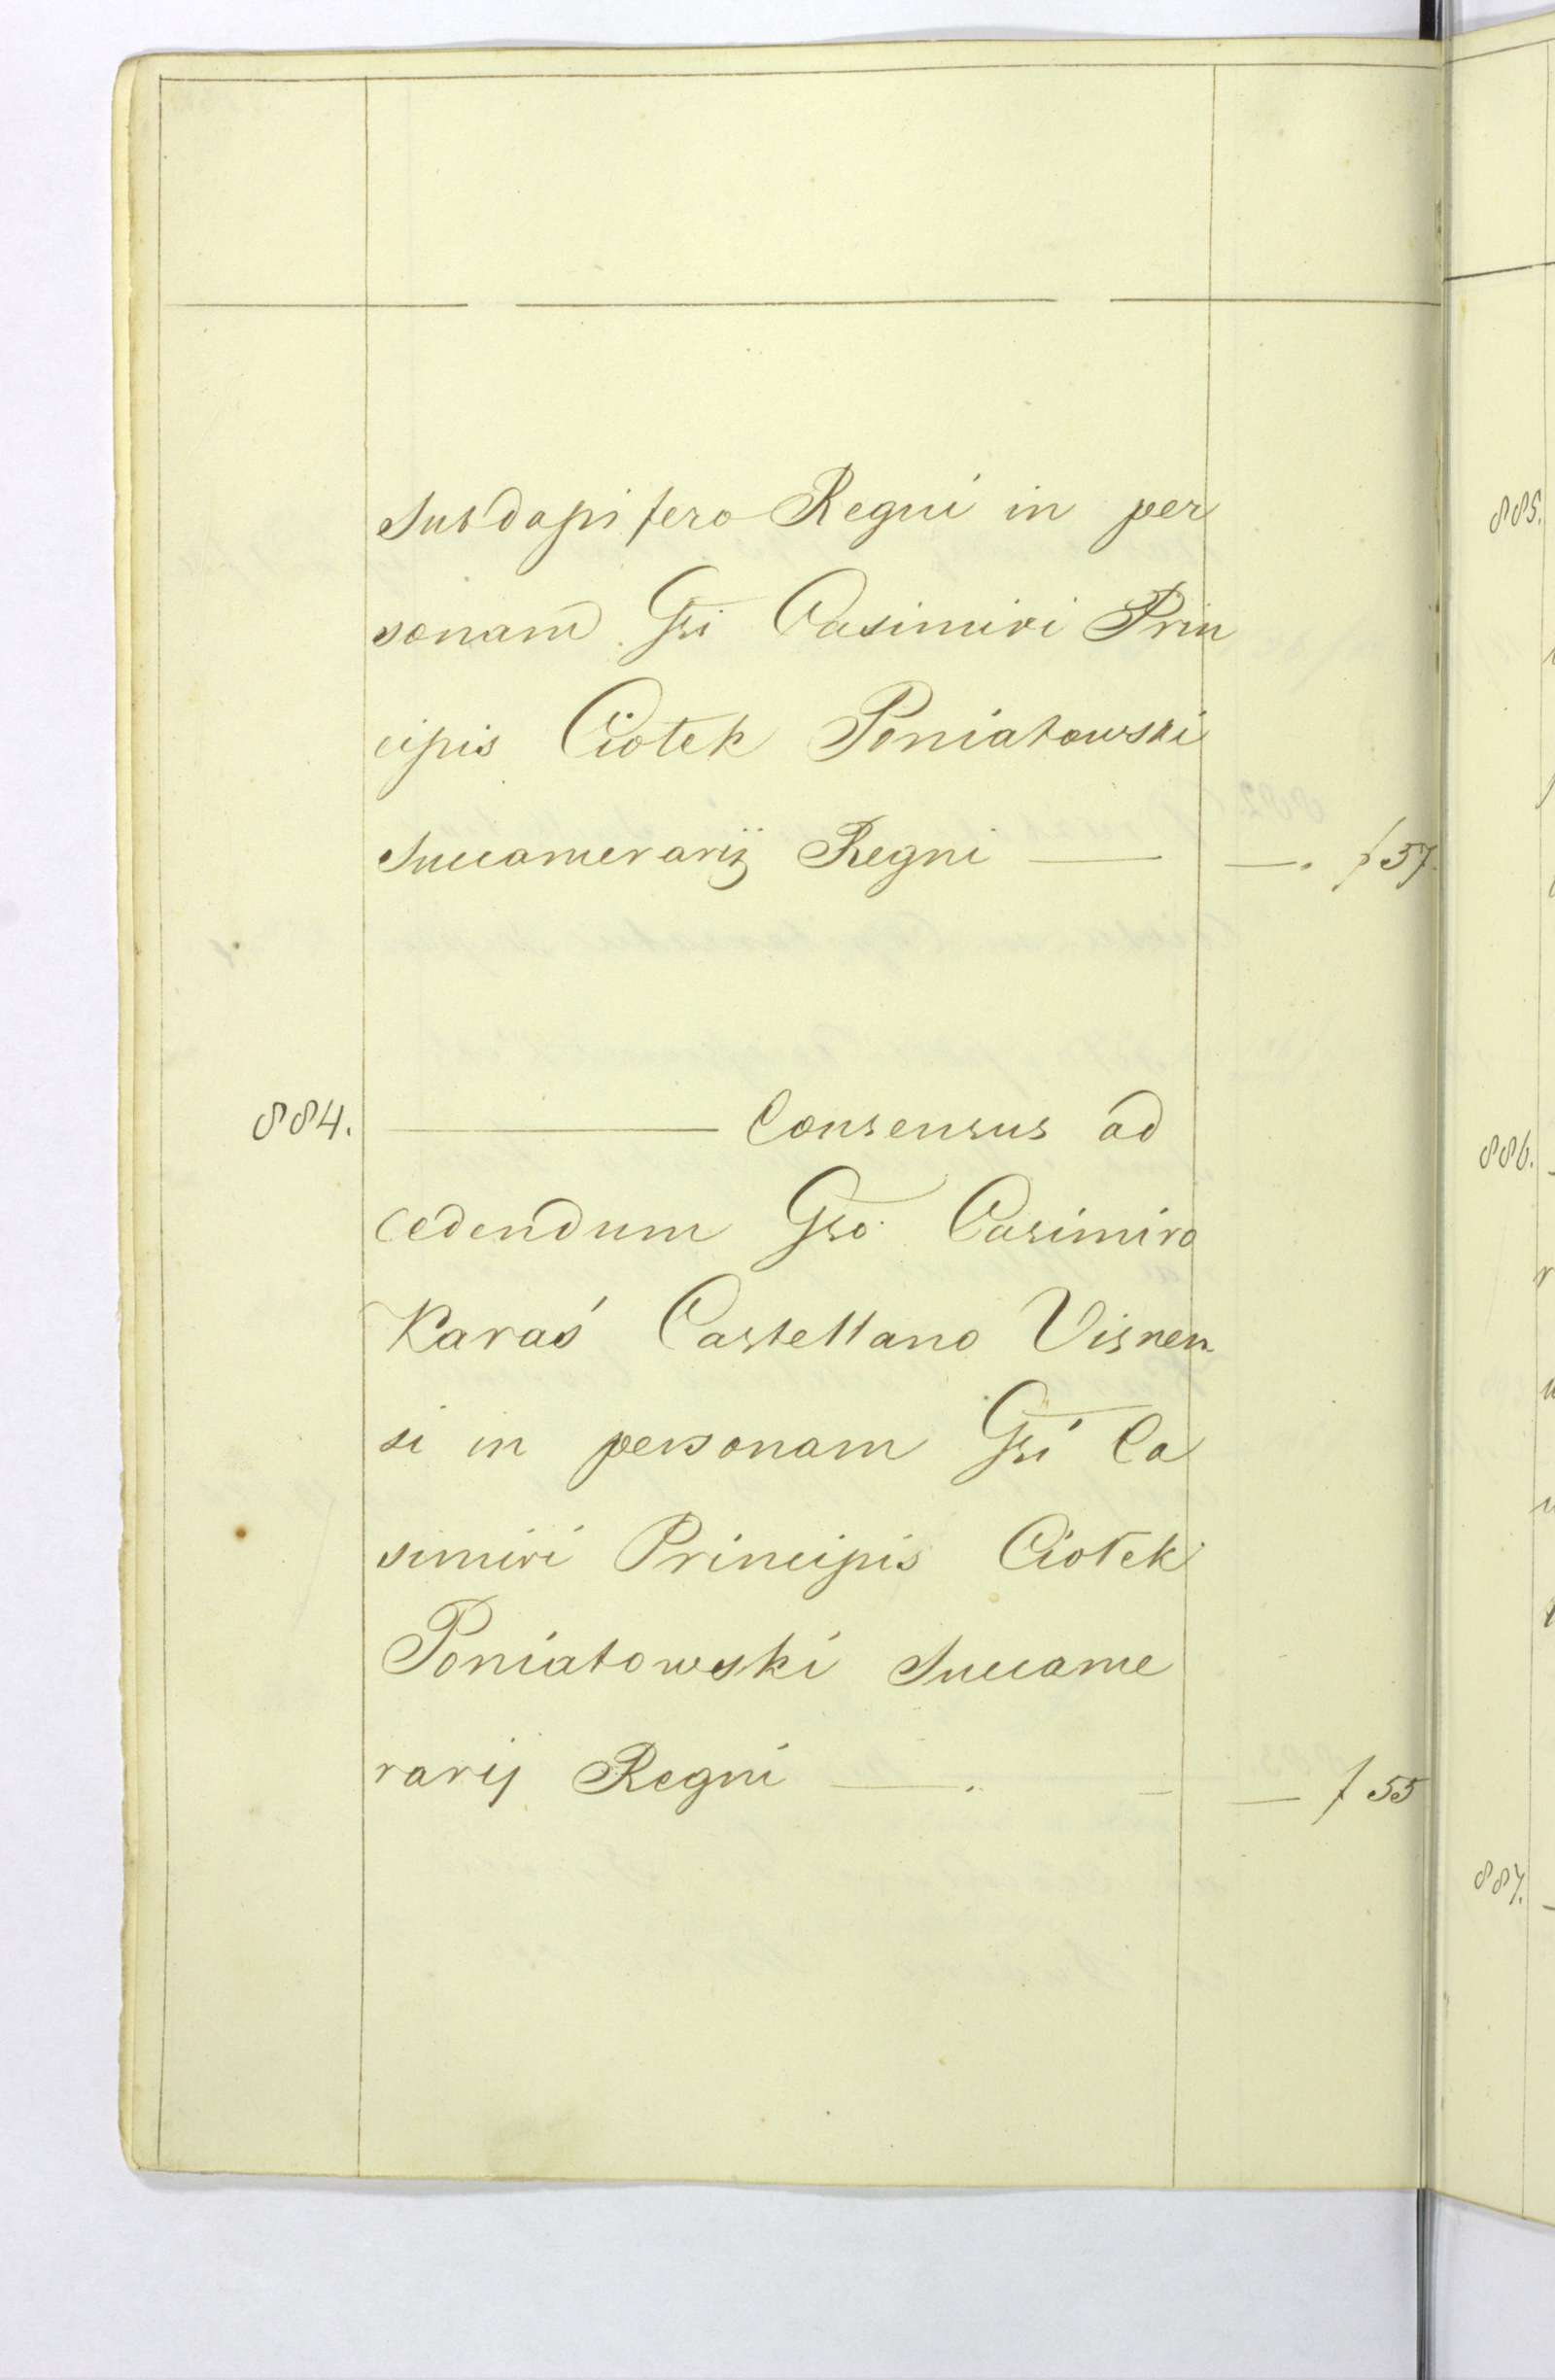 Subdapifero Regni in per
sonam Gsi Casimiri Prin
cipis Ciołek Poniatowski
Succamerarij Regni — —. f 57.
884. — Consensus ad
cedendum Gso Casimiro
Karaś Castellano Visnen
si in personam Gsi Ca
simiri Principis Ciołek
Poniatowski Succame
rarij Regni —. - — f 55
885.
886.
887.